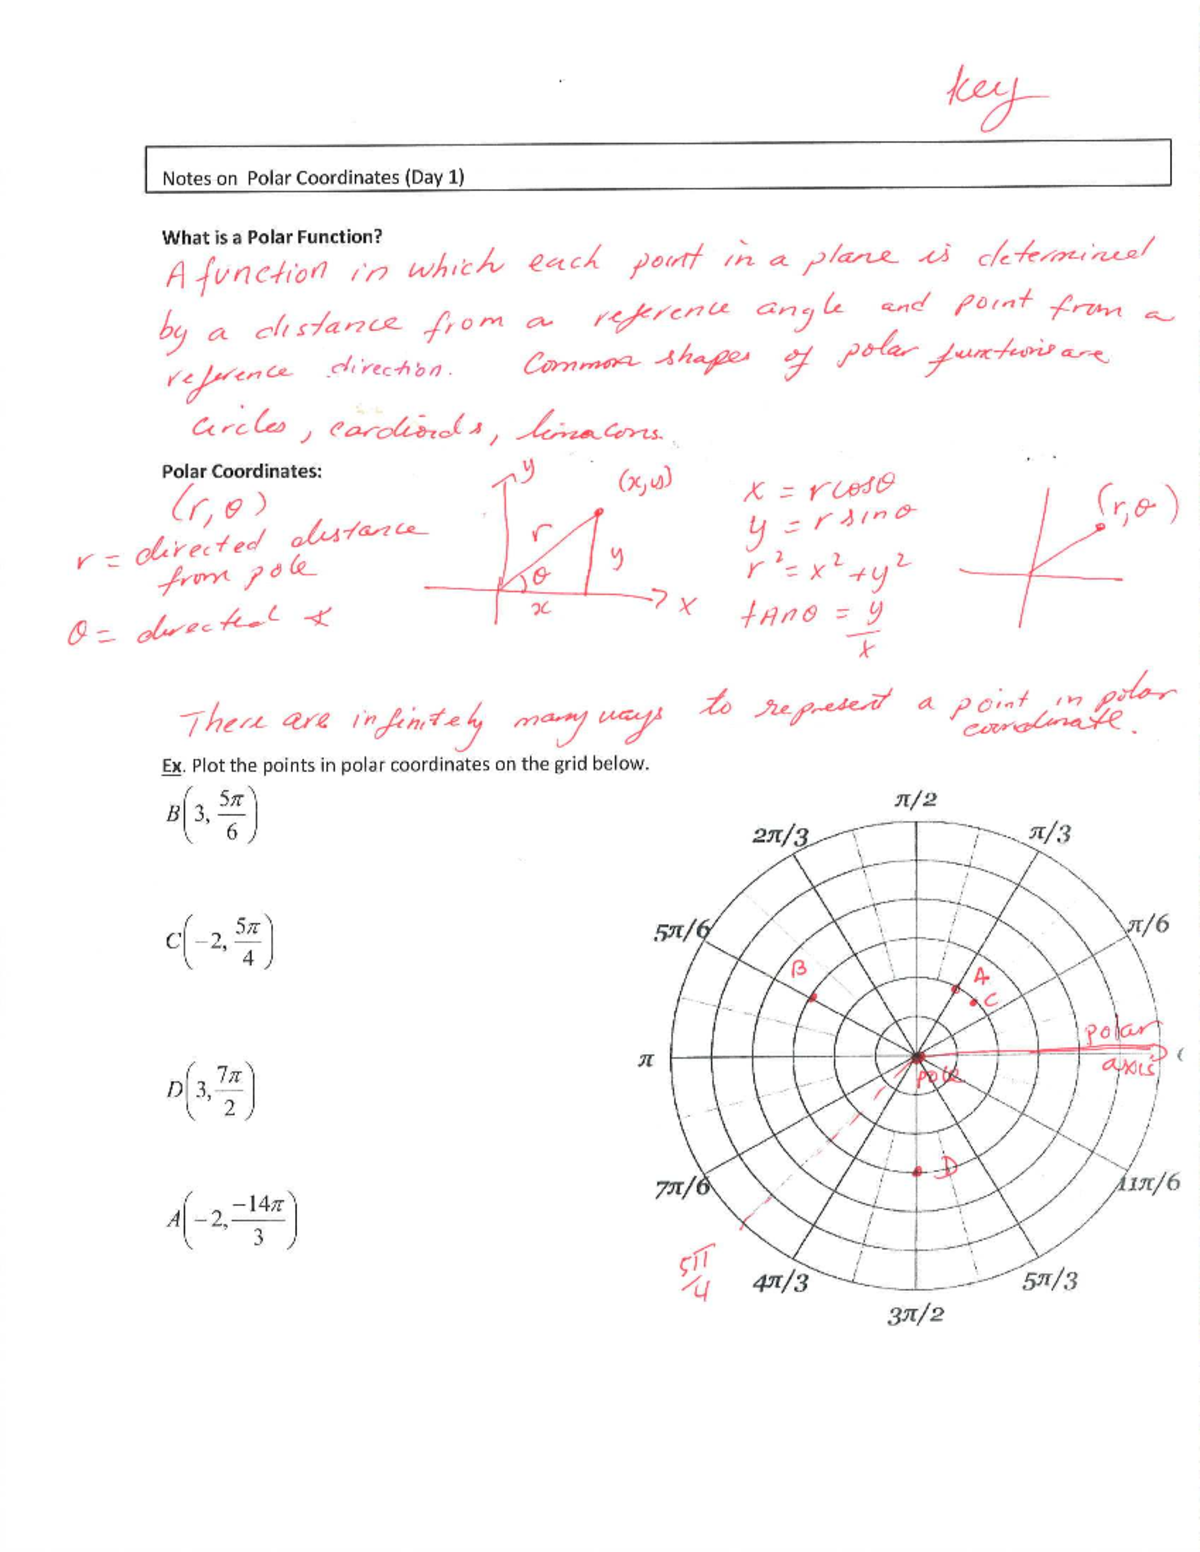 key
Notes on Polar Coordinates (Day 1)
What is a Polar Function?
A function in which each point in a plane is determined
by a distance from a reference angle and point from a
reference direction. Common shapes of polar functions are
circles, cardioids, limacons.
Polar Coordinates:
(r, θ)
r = directed distance
from pole
θ = directed ∡
y
(x, y)
r
θ
y
x
x
x = r cosθ
y = r sinθ
r² = x² + y²
tanθ = y/x
(r, θ)
There are infinitely many ways to represent a point in polar
coordinate.
Ex. Plot the points in polar coordinates on the grid below.
B(3, 5π/6)
C(-2, 5π/4)
D(3, 7π/2)
A(-2, -14π/3)
π/2
2π/3
π/3
5π/6
π/6
B
A
C
polar
π
axis
pole
D
7π/6
11π/6
5π/4
4π/3
5π/3
3π/2